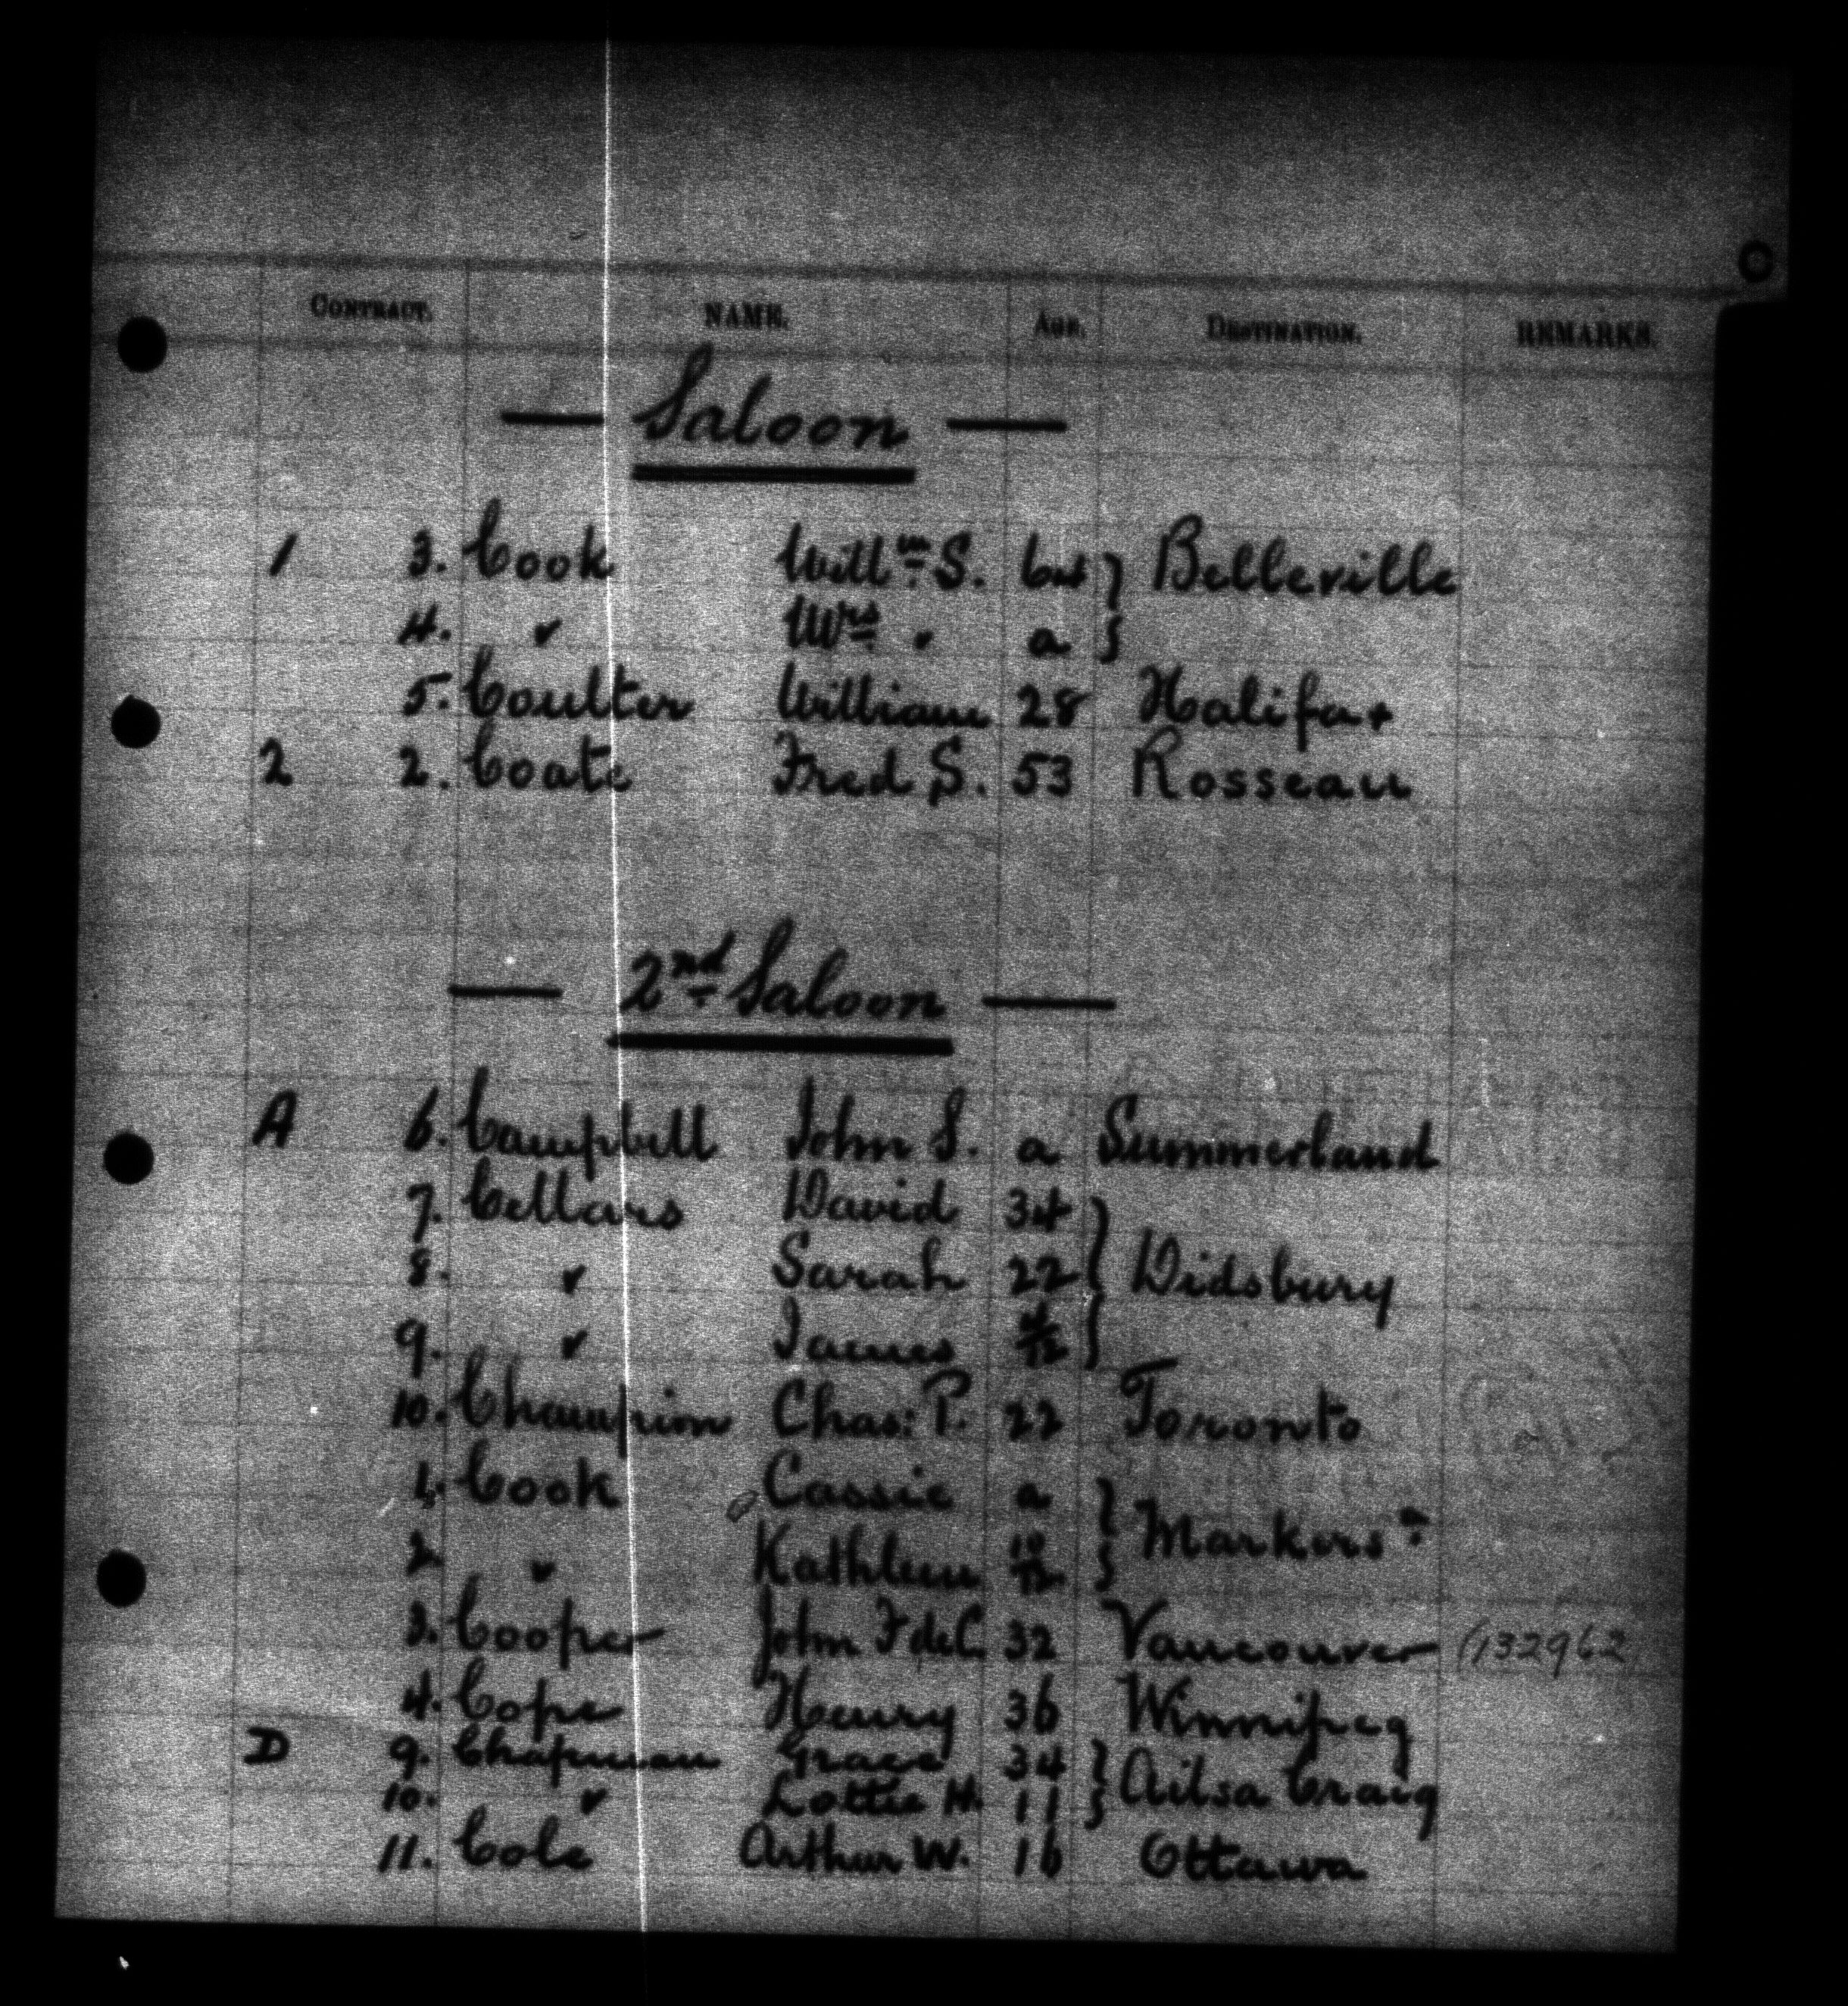 C
CONTRACT. NAME. AGE. DESTINATION. REMARKS.
— Saloon —
1 3. Cook Will<sup>m</sup> S. 64 } Belleville
4. " Mrs " a }
5. Coulter William 28 Halifax
2 2. Coate Fred S. 53 Rosseau
— 2nd Saloon —
A 6. Campbell John S. a Summerland
7. Cellars David 34 }
8. " Sarah 22 } Didsbury
9. " James }
10. Champion Chas: P. 22 Toronto
1. Cook Cassie a }
2. " Kathleen 10/12 }
3. Cooper John F de C. 32 Vancouver (132962)
4. Cope Henry 36 Winnipeg
D 9. Chapman Grace 34 } Ailsa Craig
10. " Lottie H. 11 }
11. Cole Arthur W. 16 Ottawa